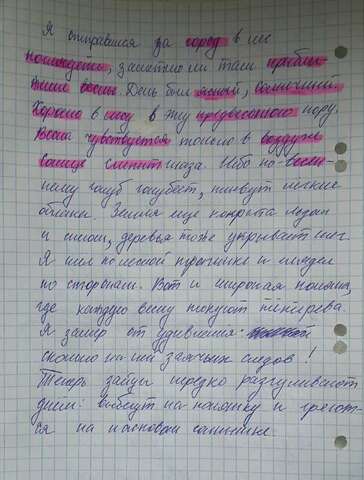 Я отправился за город в лес
посмотреть, заметно ли там приближ
ение весны. День был ясный, солнечный.
Хорошо в лесу в эту предвесеннюю пору.
Весна чувствуется только в воздухе
Солнце слепит глаза. Небо по-весен-
нему голубеет, плывут легкие
облака. Земля еще покрыта льдом
и снегом, деревья тоже укрывает снег.
Я шел по лесной просеке и глядел
по сторонам. Вот и широкая поляна,
где каждую весну токуют тетерева.
Я замер от удивления:
сколько на ней заячьих следов!
Теперь зайцы нередко разгуливают
днем: выбегут на полянку и греют-
ся на солнышке.